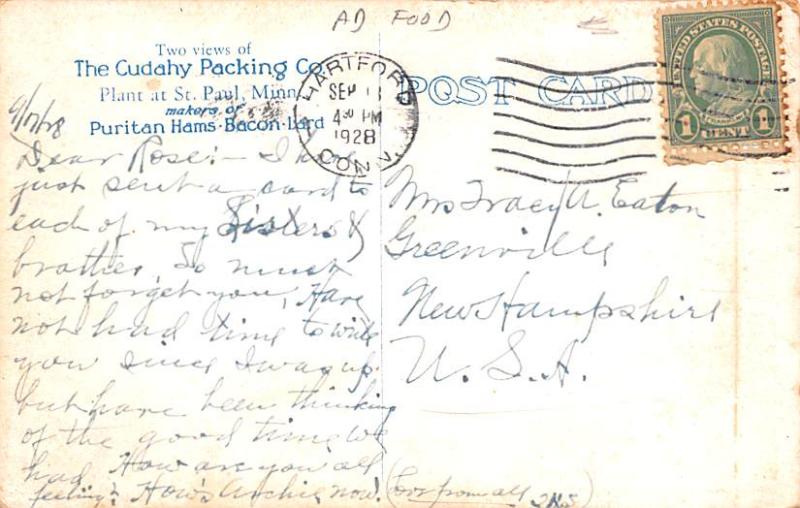 AD FOOD
Two views of
The Cudahy Packing Co.
Plant at St. Paul, Minn.
makers of
Puritan Hams-Bacon-Lard
HARTFORD
SEP
4 30 PM
1928
CONN.
POST CARD
UNITED STATES POSTAGE
FRANKLIN
1 CENT 1
9/17/28
Dear Rose:- I have
just sent a card to
each of my Sisters &
brother, So must
not forget you, Have
not had time to write
you since I was up
but have been thinking
of the good time we
had How are you all
feeling? How's Archie now? (Love from all
Mrs Tracy A. Eaton
Greenville
New Hampshire
U. S. A.